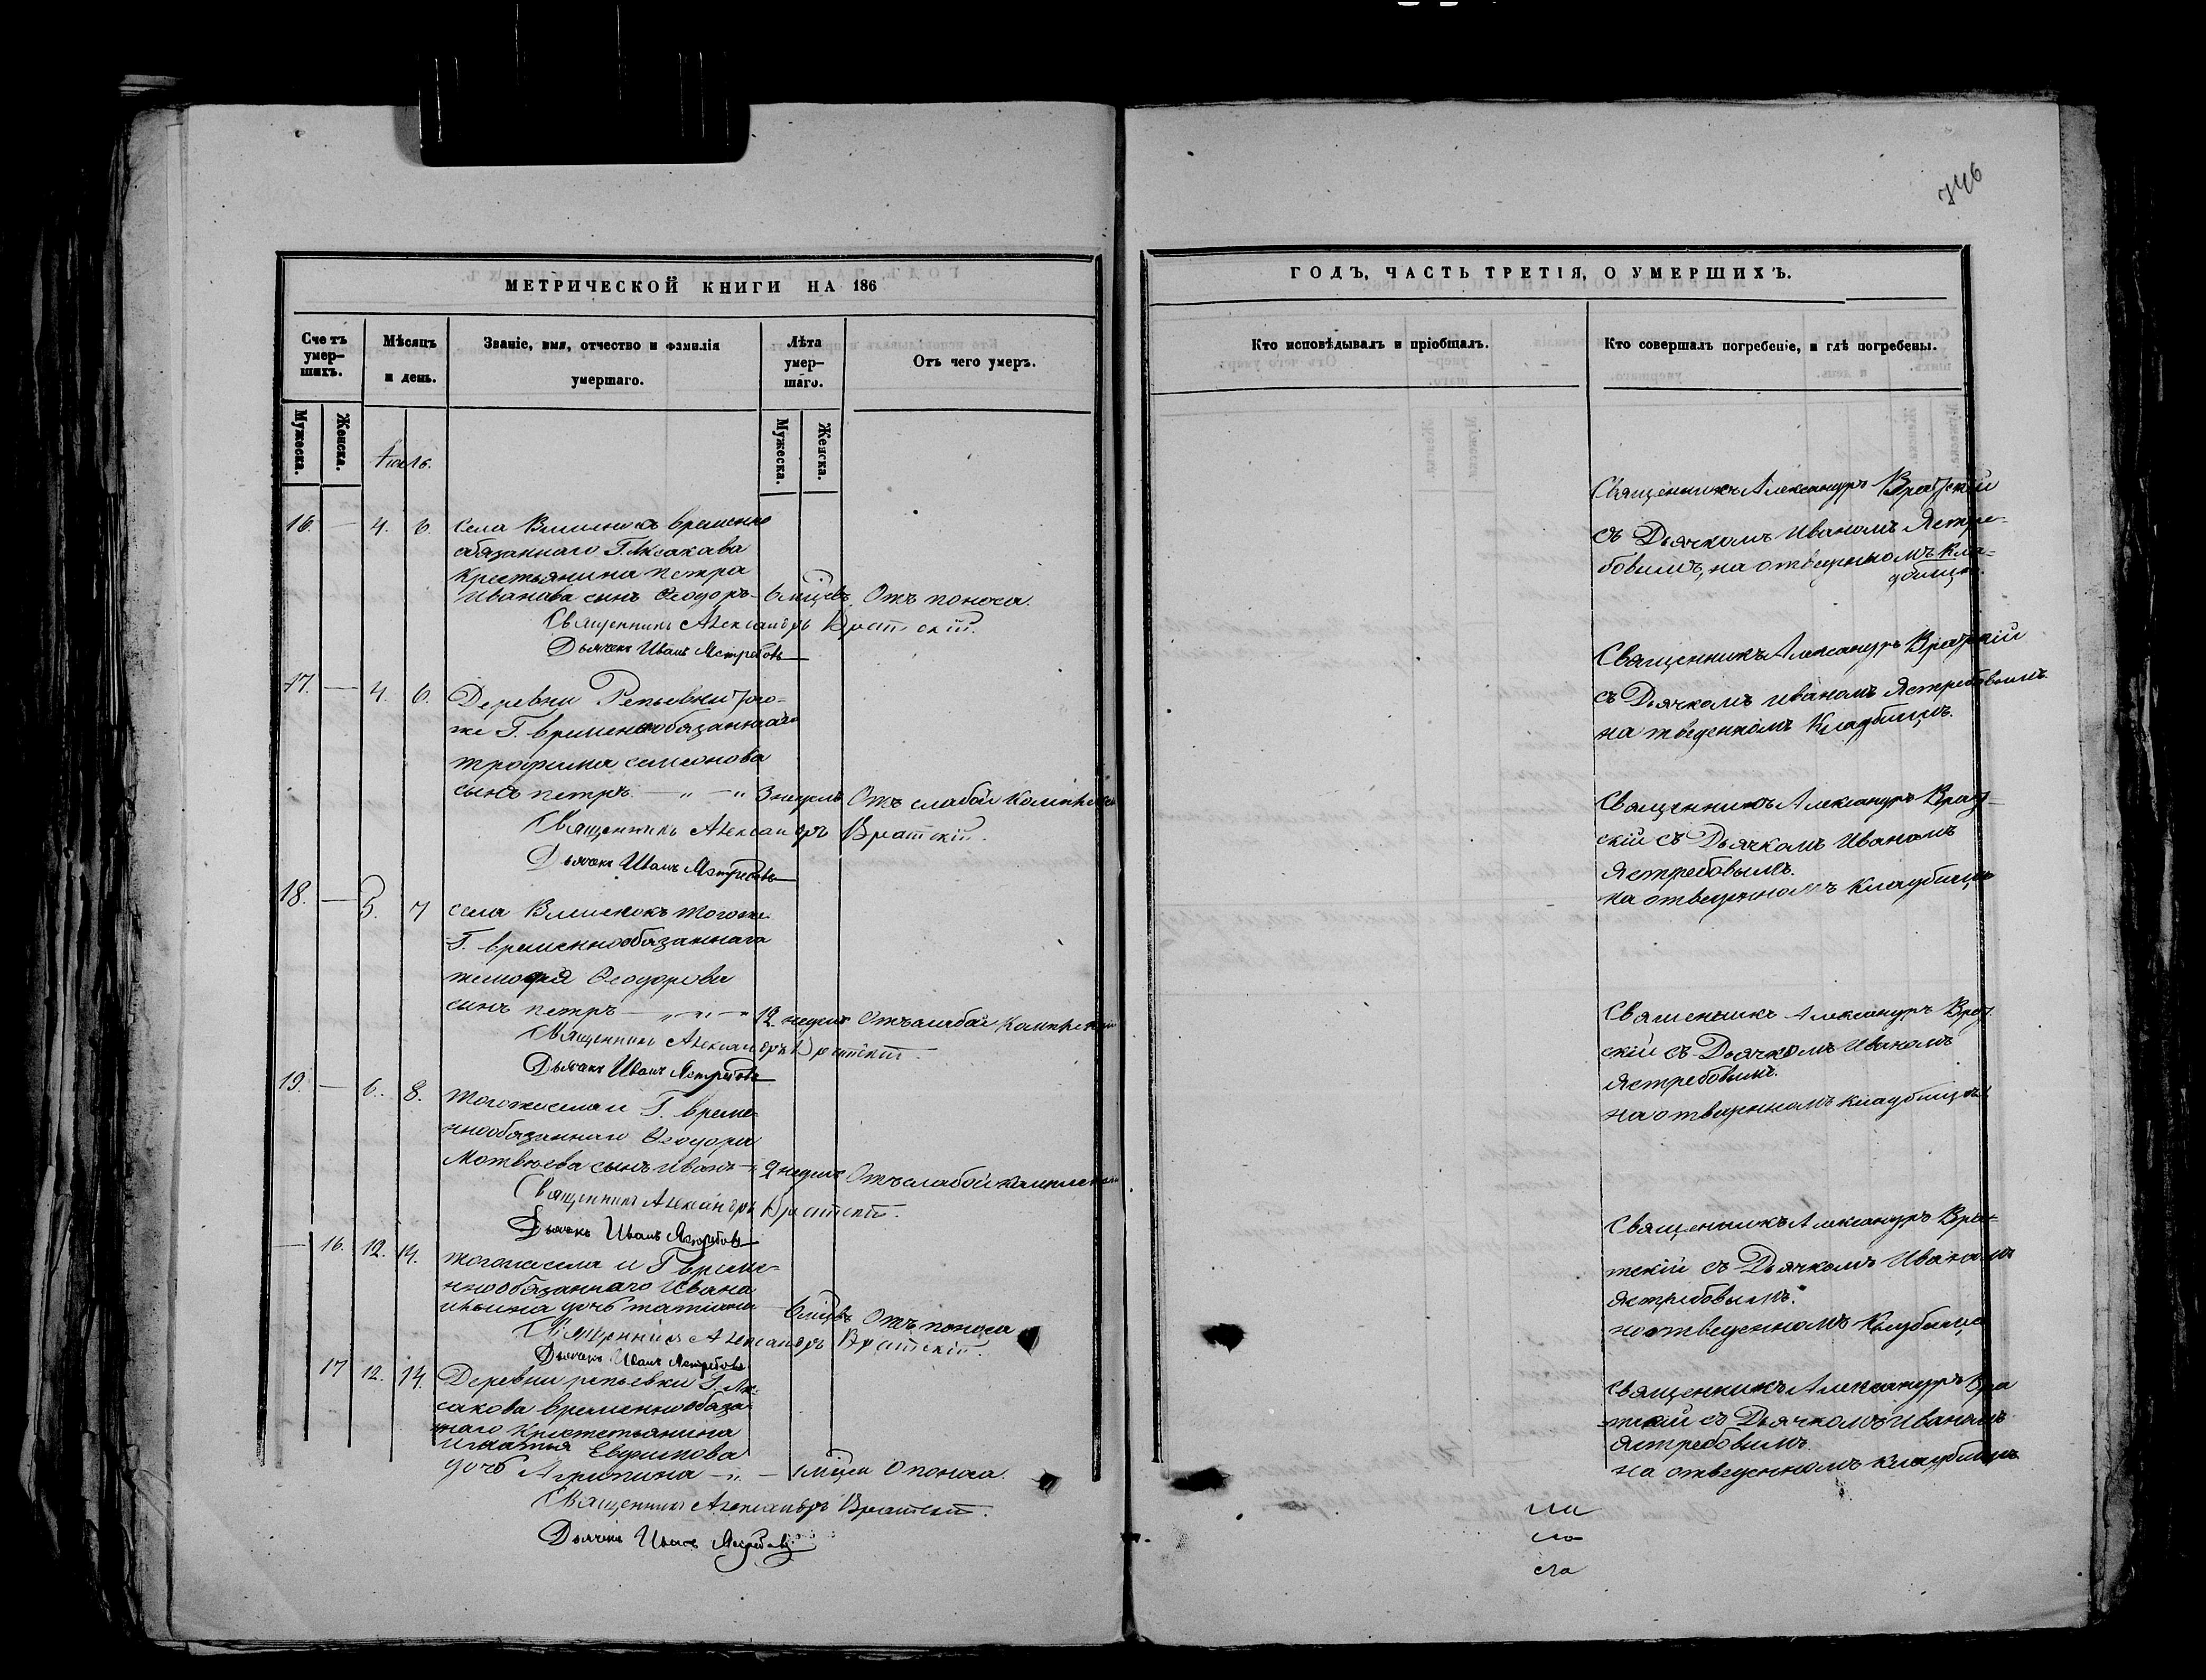 746
МЕТРИЧЕСКОЙ КНИГИ НА 186
ГОДЪ, ЧАСТЬ ТРЕТІЯ, О УМЕРШИХЪ.
Счетъ умер-шихъ.
Мѣсяцъ и день.
Званіе, имя, отчество и фамилія умершаго.
Лѣта умер-шаго.
Отъ чего умеръ.
Кто исповѣдывалъ и пріобщалъ.
Кто совершалъ погребеніе, и гдѣ погребены.
Мужеска.
Женска.
Мужеска.
Женска.
16. — 4. 6. Села временно
обязаннаго Г. Аксакова
Крестьянина Петра
Иванова сынъ Ѳеодоръ — 6 мѣцевъ. Отъ поноса.
Священникъ Александръ Вратскій.
Дьячекъ Иванъ Ястребовъ
Священникъ Александръ Вратскій
съ Дьячкомъ Иваномъ Ястре-
бовымъ, на отведенномъ Кла-
дбищѣ.
17. — 4. 6. Деревни Репьевки того-
же Г. временнообязаннаго
Трофима Симеонова
сынъ Петръ — " — " 3 недель Отъ слабой
Священникъ Александръ Вратскій.
Дьячекъ Иванъ Ястребовъ
Священникъ Александръ Вратскій
съ Дьячкомъ Иваномъ Ястребовымъ
на отведенномъ Кладбищѣ.
18. — 5. 7 Села тогоже
Г. временнообязаннаго
Ѳеодорова
сынъ Петръ — " — " 12 недель Отъ слабой
Священникъ Александръ Вратскій.
Дьячекъ Иванъ Ястребовъ
Священникъ Александръ Врат-
скій съ Дьячкомъ Иваномъ
Ястребовымъ.
на отведенномъ Кладбищѣ
19. — 6. 8. Тогоже села и Г. време-
ннообязаннаго Ѳеодора
Матвѣева сынъ Иванъ — 2 недель Отъ слабой
Священникъ Александръ Вратскій.
Дьячекъ Иванъ Ястребовъ
Священникъ Александръ Врат-
скій съ Дьячкомъ Иваномъ
Ястребовымъ.
на отведенномъ кладбищѣ
— 16. 12. 14. Тогоже села и Г време-
ннообязаннаго Ивана
Ильина дочь Татіана — 6 мѣцевъ Отъ поноса
Священникъ Александръ Вратскій.
Дьячекъ Иванъ Ястребовъ
Священникъ Александръ Вра-
тскій съ Дьячкомъ Иваномъ
Ястребовымъ.
на отведенномъ Кладбищѣ
17 12. 14. Деревни репьевки Г. Ак-
сакова временнообяза-
ннаго Крестьянина
Игнатья Евдокимова
дочь Агрипина — " — мѣца О поноса.
Священникъ Александръ Вратскій.
Дьячекъ Иванъ Ястребовъ
Священникъ Александръ Вра
тскій съ Дьячкомъ Иваномъ
Ястребовымъ.
на отведенномъ кладбищѣ